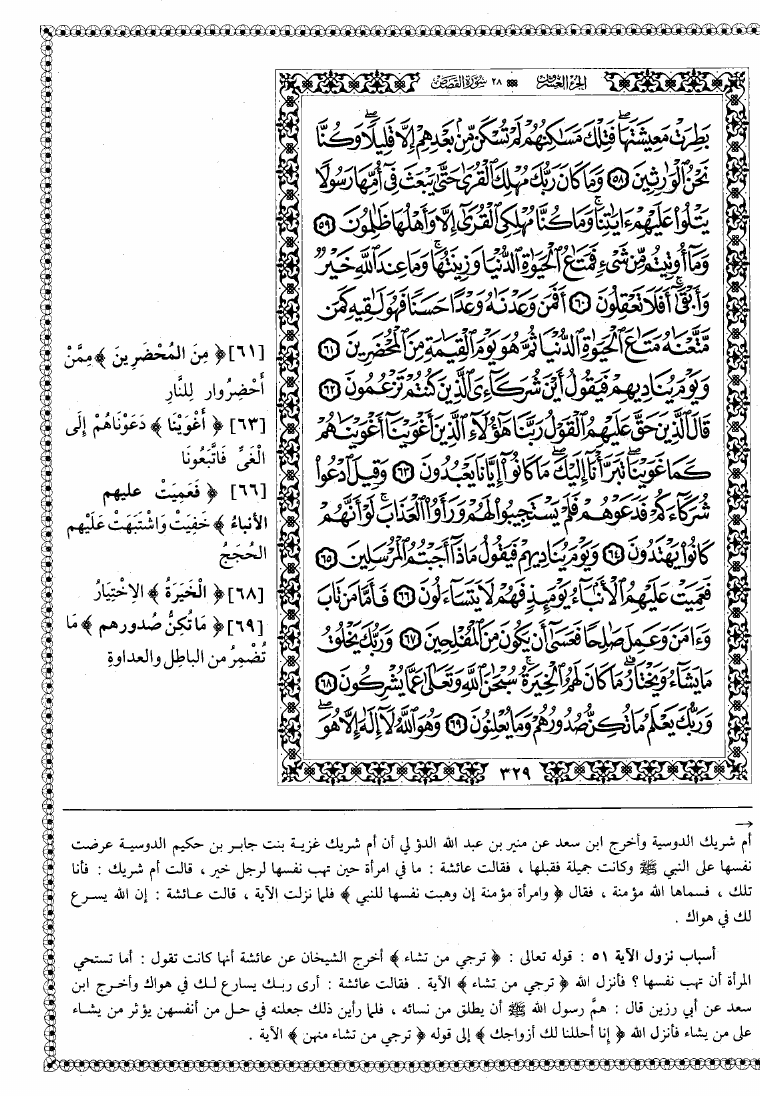 الجزء العشرون ٢٨ سورة القصص
بَطِرَتْ مَعِيشَتَهَا فَتِلْكَ مَسَاكِنُهُمْ لَمْ تُسْكَن مِّنْ بَعْدِهِمْ إِلَّا قَلِيلًا وَكُنَّا
نَحْنُ الْوَارِثِينَ ٥٨ وَمَا كَانَ رَبُّكَ مُهْلِكَ الْقُرَى حَتَّى يَبْعَثَ فِي أُمِّهَا رَسُولًا
يَتْلُوا عَلَيْهِمْ ءَايَاتِنَا وَمَا كُنَّا مُهْلِكِي الْقُرَى إِلَّا وَأَهْلُهَا ظَالِمُونَ ٥٩
وَمَا أُوتِيتُم مِّن شَيْءٍ فَمَتَاعُ الْحَيَوٰةِ الدُّنْيَا وَزِينَتُهَا وَمَا عِندَ اللَّهِ خَيْرٌ
وَأَبْقَى أَفَلَا تَعْقِلُونَ ٦٠ أَفَمَن وَعَدْنَاهُ وَعْدًا حَسَنًا فَهُوَ لَاقِيهِ كَمَن
مَّتَّعْنَاهُ مَتَاعَ الْحَيَوٰةِ الدُّنْيَا ثُمَّ هُوَ يَوْمَ الْقِيَامَةِ مِنَ الْمُحْضَرِينَ ٦١
وَيَوْمَ يُنَادِيهِمْ فَيَقُولُ أَيْنَ شُرَكَاءِيَ الَّذِينَ كُنتُمْ تَزْعُمُونَ ٦٢
قَالَ الَّذِينَ حَقَّ عَلَيْهِمُ الْقَوْلُ رَبَّنَا هَٰؤُلَاءِ الَّذِينَ أَغْوَيْنَا أَغْوَيْنَاهُمْ
كَمَا غَوَيْنَا تَبَرَّأْنَا إِلَيْكَ مَا كَانُوا إِيَّانَا يَعْبُدُونَ ٦٣ وَقِيلَ ادْعُوا
شُرَكَاءَكُمْ فَدَعَوْهُمْ فَلَمْ يَسْتَجِيبُوا لَهُمْ وَرَأَوُا الْعَذَابَ لَوْ أَنَّهُمْ
كَانُوا يَهْتَدُونَ ٦٤ وَيَوْمَ يُنَادِيهِمْ فَيَقُولُ مَاذَا أَجَبْتُمُ الْمُرْسَلِينَ ٦٥
فَعَمِيَتْ عَلَيْهِمُ الْأَنْبَاءُ يَوْمَئِذٍ فَهُمْ لَا يَتَسَاءَلُونَ ٦٦ فَأَمَّا مَن تَابَ
وَءَامَنَ وَعَمِلَ صَالِحًا فَعَسَى أَن يَكُونَ مِنَ الْمُفْلِحِينَ ٦٧ وَرَبُّكَ يَخْلُقُ
مَا يَشَاءُ وَيَخْتَارُ مَا كَانَ لَهُمُ الْخِيَرَةُ سُبْحَانَ اللَّهِ وَتَعَالَى عَمَّا يُشْرِكُونَ ٦٨
وَرَبُّكَ يَعْلَمُ مَا تُكِنُّ صُدُورُهُمْ وَمَا يُعْلِنُونَ ٦٩ وَهُوَ اللَّهُ لَا إِلَٰهَ إِلَّا هُوَ
٣٢٩
[٦١] ﴿ مِنَ المُحْضَرِينَ ﴾ مِمَّنْ
أُحْضِرُوار لِلنَّارِ
[٦٣] ﴿ أَغْوَيْنَا ﴾ دَعَوْنَاهُمْ إِلَى
الْغَيِّ فَاتَّبَعُونَا
[٦٦] ﴿ فَعَمِيَتْ عليهم
الأنباءُ ﴾ خَفِيَتْ وَاشْتَبَهَتْ عَلَيْهِم
الحُجَجُ
[٦٨] ﴿ الْخَيَرَةُ ﴾ الاِخْتِيَارُ
[٦٩] ﴿ مَا تُكِنُّ صُدورهم ﴾ مَا
تُضْمِرُ من الباطِل والعداوةِ
←
أم شريك الدوسية وأخرج ابن سعد عن منير بن عبد الله الدؤلي أن أم شريك غزية بنت جابر بن حكيم الدوسية عرضت
نفسها على النبي ﷺ وكانت جميلة فقبلها ، فقالت عائشة : ما في امرأة حين تهب نفسها لرجل خير ، قالت أم شريك : فأنا
تلك ، فسماها الله مؤمنة ، فقال ﴿ وامرأة مؤمنة إن وهبت نفسها للنبي ﴾ فلما نزلت الآية ، قالت عائشة : إن الله يسرع
لك في هواك .
أسباب نزول الآية ٥١ : قوله تعالى : ﴿ ترجي من تشاء ﴾ أخرج الشيخان عن عائشة أنها كانت تقول : أما تستحي
المرأة أن تهب نفسها ؟ فأنزل الله ﴿ ترجي من تشاء ﴾ الآية . فقالت عائشة : أرى ربك يسارع لك في هواك وأخرج ابن
سعد عن أبي رزين قال : همَّ رسول الله ﷺ أن يطلق من نسائه ، فلما رأين ذلك جعلنه في حل من أنفسهن يؤثر من يشاء
على من يشاء فأنزل الله ﴿ إنا أحللنا لك أزواجك ﴾ إلى قوله ﴿ ترجي من تشاء منهن ﴾ الآية .